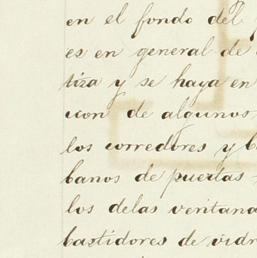 en el fondo del
es en general de
tiza y se haya en
con de algunos
los corredores y b
banos de puertas
los delas ventana
bastidores de vidr